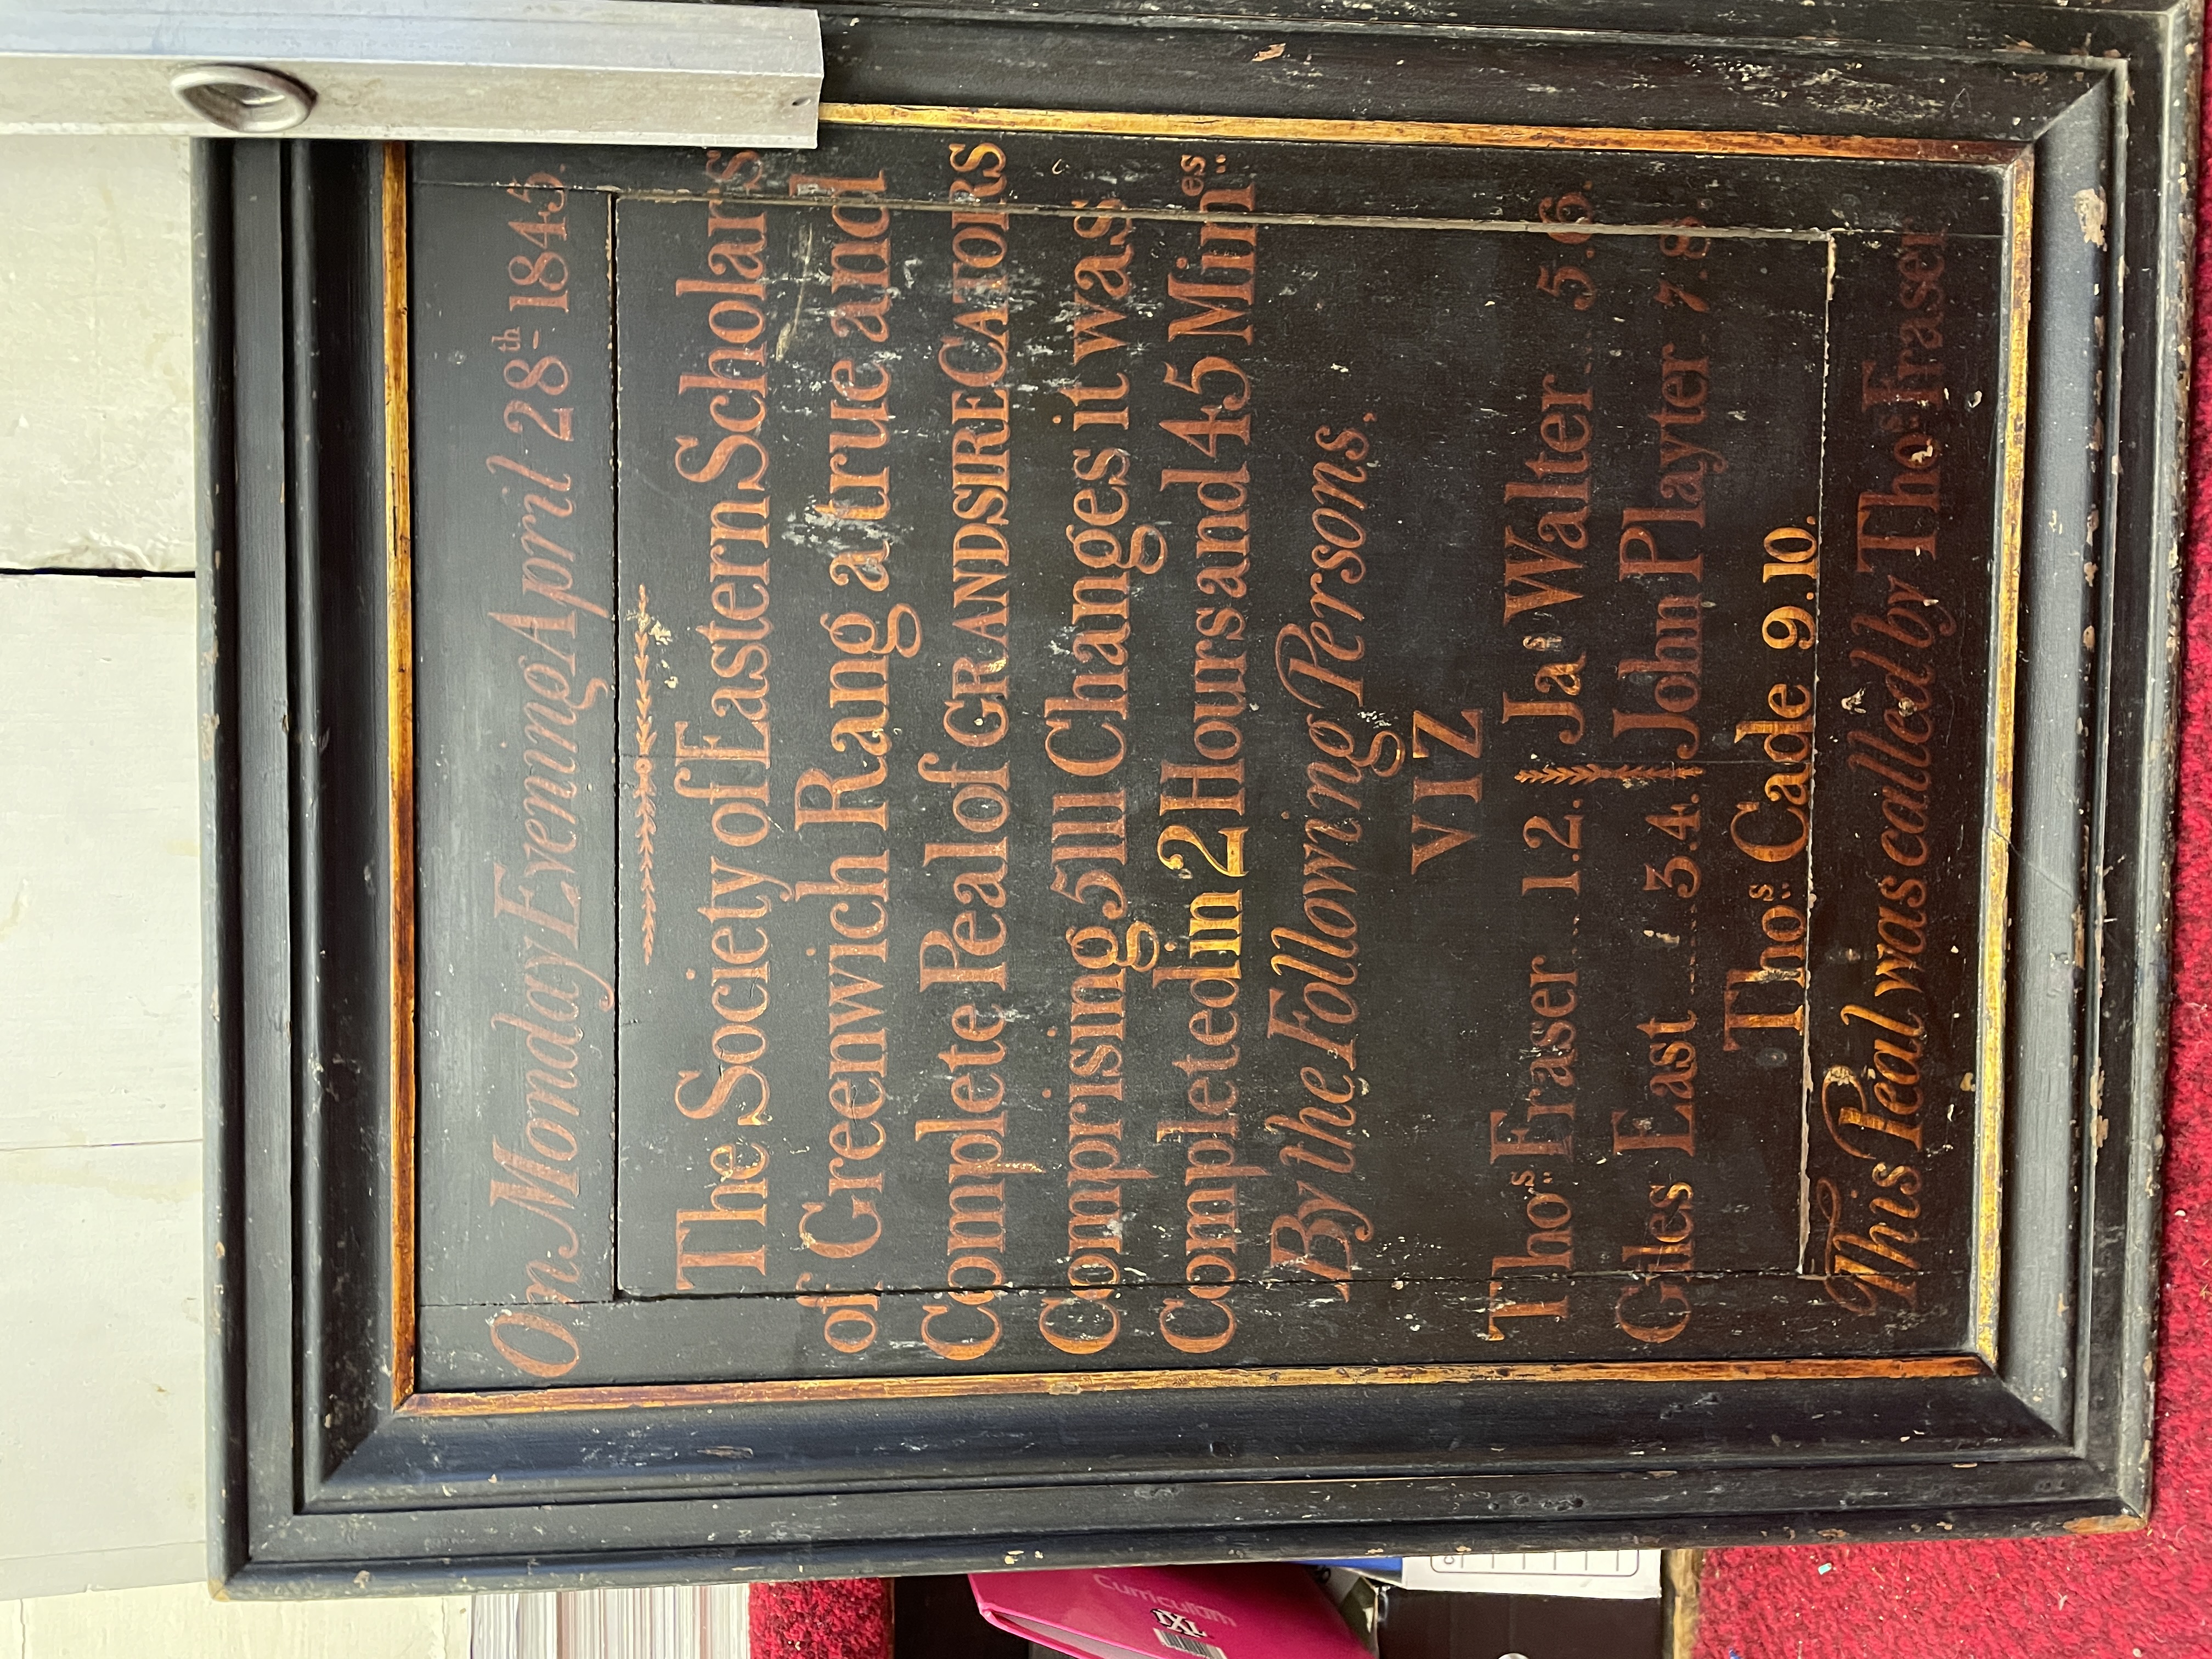 On Monday Evening April 28th 1845.
The Society of Eastern Scholars
of Greenwich Rang a true and
Complete Peal of GRANDSIRE CATORS
Comprising 5111 Changes it was
Completed in 2 Hours and 45 Mines:
By the Following Persons.
VIZ
Thos: Fraser ... 1.2. Jas Walter ... 5.6.
Giles East ... 3.4. John Playter .. 7.8.
Thos: Cade 9.10.
This Peal was callled by Thos Fraser.
Curriculum
IXL